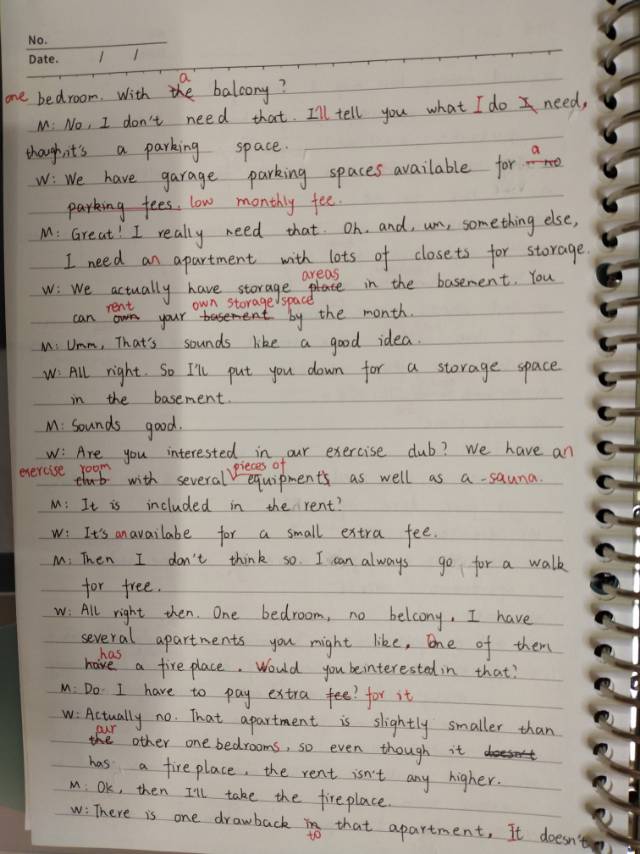 No.
Date. / /
one bedroom. With the a balcony?
M: No, I don't need that. I'll tell you what I do I need,
though, it's a parking space.
W: We have garage parking spaces available for no a
parking fees. low monthly fee.
M: Great! I really need that. Oh, and, um, something else,
I need an apartment with lots of closets for storage.
W: We actually have storage place areas in the basement. You
can own rent your basement own storage space by the month.
M: Umm, That's sounds like a good idea.
W: All right. So I'll put you down for a storage space
in the basement.
M: Sounds good.
W: Are you interested in our exercise club? We have an
exercise club room with several pieces of equipments as well as a sauna.
M: It is included in the rent?
W: It's an availabe for a small extra fee.
M: Then I don't think so. I can always go for a walk
for free.
W: All right then. One bedroom, no belcony. I have
several apartments you might like, One of them
have has a fireplace. Would you be interested in that?
M: Do I have to pay extra fee? for it
W: Actually no. That apartment is slightly smaller than
the our other one bedrooms, so even though it doesn't
has a fireplace, the rent isn't any higher.
M: Ok, then I'll take the fireplace.
W: There is one drawback in to that apartment, It doesn't